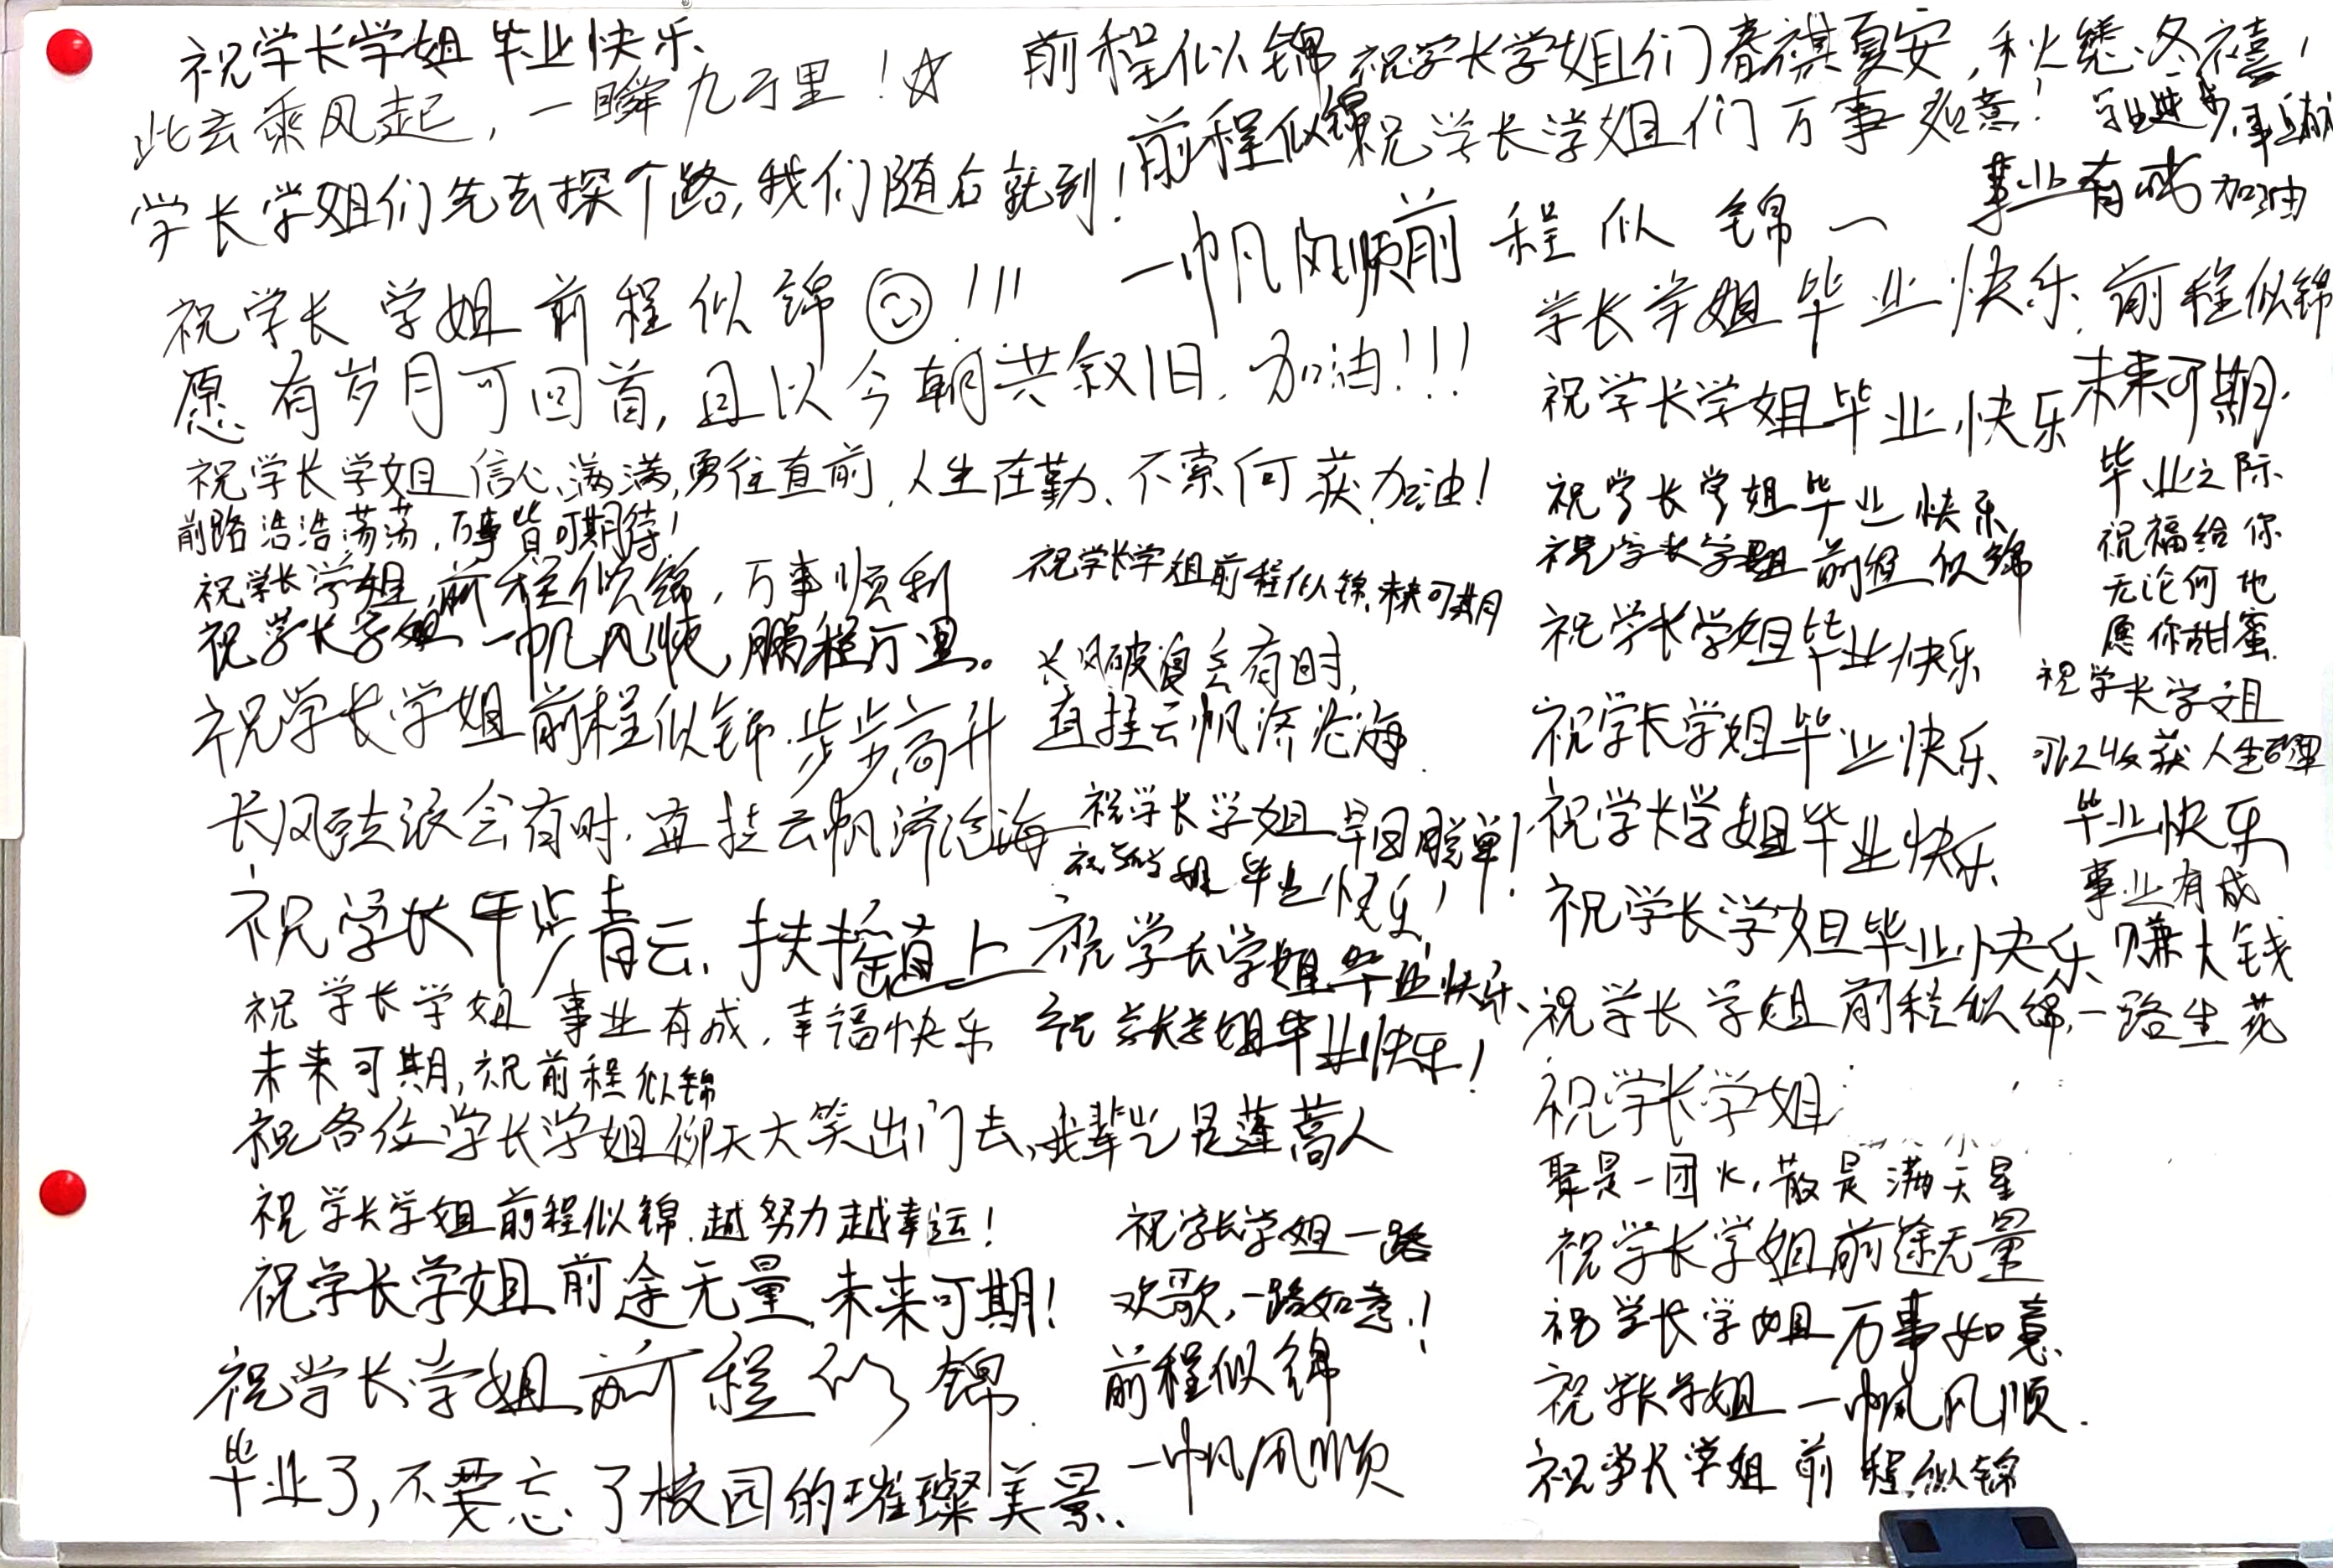 祝学长学姐毕业快乐
此去乘风起，一瞬九万里！☆
学长学姐们先去探个路，我们随后就到！
祝学长学姐前程似锦!!!
愿有岁月可回首，且以今朝共叙旧.加油!!!
祝学长学姐信心满满,勇往直前,人生在勤、不索何获,加油！
前路浩浩荡荡，万事皆可期待！
祝学长学姐,前程似锦，万事顺利
祝学长学姐一帆风顺，鹏程万里。
祝学长学姐前程似锦.步步高升
长风破浪会有时.直挂云帆济沧海
祝学长平步青云，扶摇直上
祝学长学姐事业有成，幸福快乐
未来可期，祝前程似锦
祝各位学长学姐仰天大笑出门去，我辈岂是蓬蒿人
祝学长学姐前程似锦.越努力越幸运！
祝学长学姐前途无量,未来可期！
祝学长学姐前程似锦.
毕业了，不要忘了校园的璀璨美景.
前程似锦
祝学长学姐们春祺夏安，秋绥冬禧，
前程似锦
祝学长学姐们万事如意！
事业有成
加油
一帆风顺前程似锦
祝学长学姐前程似锦,未来可期
长风破浪会有时,
直挂云帆济沧海.
祝学长学姐早日脱单！
毕业快乐！
祝学长学姐毕业快乐、
祝学长学姐毕业快乐！
祝学长学姐一路
欢歌，一路如意！
前程似锦
一帆风顺
学长学姐毕业快乐,前程似锦
未来可期.
祝学长学姐毕业快乐
祝学长学姐毕业快乐
祝学长学姐前程似锦
祝学长学姐毕业快乐
祝学长学姐毕业快乐
祝学长学姐毕业快乐
祝学长学姐毕业快乐
祝学长学姐前程似锦,一路生花
祝学长学姐
聚是一团火，散是满天星
祝学长学姐前途无量
祝学长学姐万事如意
祝学长学姐一帆风顺.
祝学长学姐前程似锦
毕业之际
祝福给你
无论何地
愿你甜蜜
祝学长学姐
毕业快乐
事业有成
赚大钱